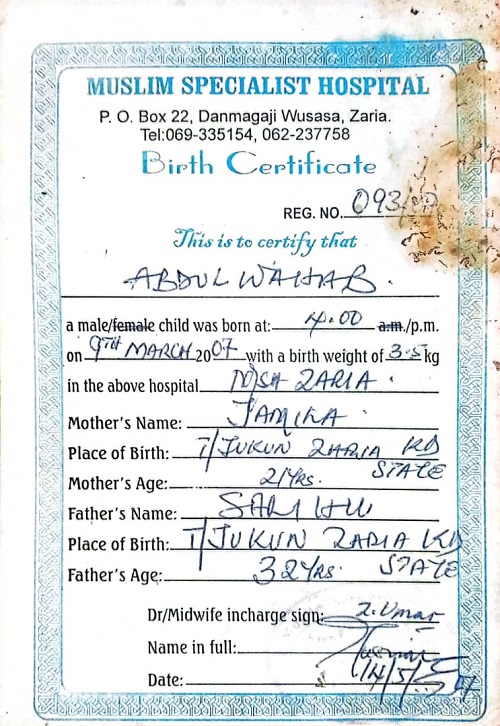 MUSLIM SPECIALIST HOSPITAL
P. O. Box 22, Danmagaji Wusasa, Zaria.
Tel:069-335154, 062-237758
Birth Certificate
REG. NO. 093/07
This is to certify that
ABDUL WAHAB.
a male/female child was born at: 4.00 a.m./p.m.
on 9TH MARCH 2007 with a birth weight of 3.5 kg
in the above hospital MSH ZARIA.
Mother's Name: JAMILA
Place of Birth: T/JUKUN ZARIA KD
STATE
Mother's Age: 21YRS.
Father's Name: SALIHU
Place of Birth: T/JUKUN ZARIA KD
STATE
Father's Age: 32YRS.
Dr/Midwife incharge sign: Z. Umar
Name in full:
Date: 14/5/07